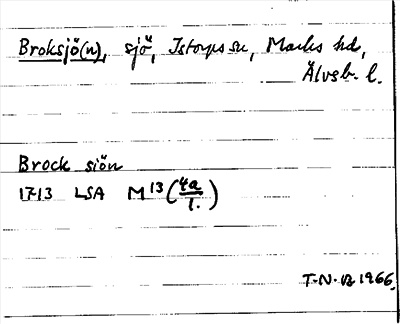 Broksjö(n), sjö, Istorps sn, Marks hd,
Älvsb. l.
Brock siön
1713 LSA M 13 (4a/1.)
T-N. 1966.